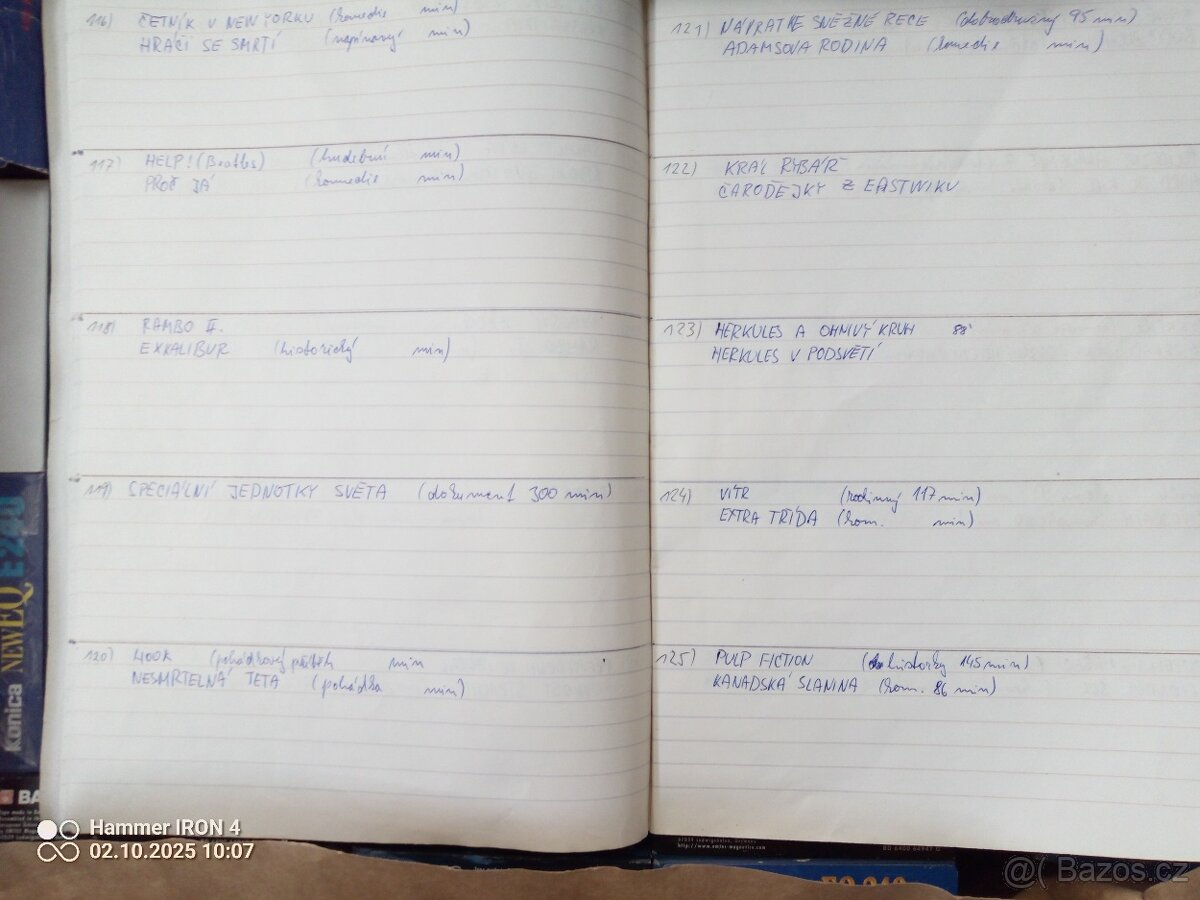 116) ČETNÍK V NEW YORKU (komedie min)
HRÁČI SE SMRTÍ (napínavý min)
117) HELP! (Beatles) (hudební min)
PROČ JÁ (komedie min)
118) RAMBO II.
EXKALIBUR (historický min)
119) SPECIÁLNÍ JEDNOTKY SVĚTA (dokument 300 min)
120) HOOK (pohádkový příběh min
NESMRTELNÁ TETA (pohádka min)
121) NÁVRAT KE SNĚŽNÉ ŘECE (dobrodružný 95 min)
ADAMSOVA RODINA (komedie min)
122) KRÁL RYBÁŘ
ČARODĚJKY Z EASTWIKU
123) HERKULES A OHNIVÝ KRUH 88'
HERKULES V PODSVĚTÍ
124) VÍTR (rodinný 117 min)
EXTRA TŘÍDA (kom. min)
125) PULP FICTION (historky 145 min)
KANADSKÁ SLANINA (kom. 86 min)
konica NEW EQ E240
BA
Hammer IRON 4
02.10.2025 10:07
http://www.emtec-magnetics.com
EQ 240
@( Bazos.cz